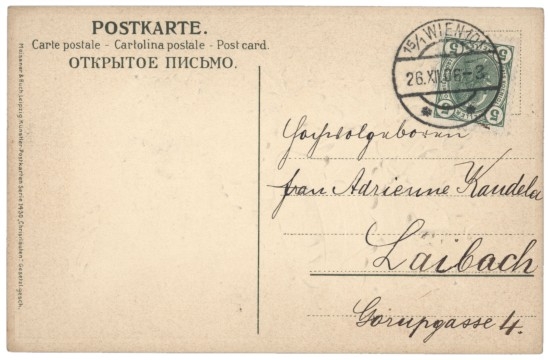 POSTKARTE.
Carte postale - Cartolina postale - Post card.
ОТКРЫТОЕ ПИСЬМО.
Meissner & Buch, Leipzig, Künstler-Postkarten Serie "Christrosen" Gesetzl. gesch.
15/1 WIEN
26.XII.06-3
5 5
5 5
Hochwolgeboren
frau Adrienne Kandela
Laibach
Gorupgasse 4.